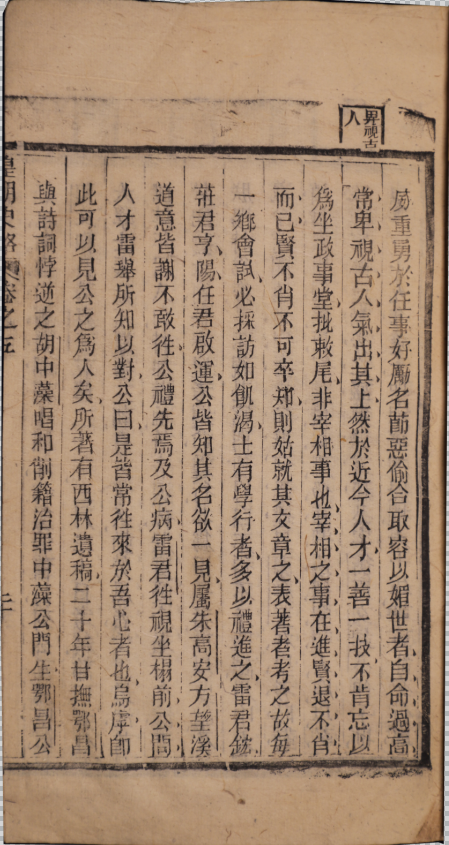 卑視古
人
威重勇於任事好勵名節惡偷合取容以媚世者自命過高
常卑視古人氣出其上然於近今人才一善一技不肯忘以
為坐政事堂批敕尾非宰相事也宰相之事在進賢退不肖
而已賢不肖不可卒知則姑就其文章之表著者考之故每
一鄉會試必採訪如飢渴士有學行者多以禮進之雷君鋐
莊君亨陽任君啟運公皆知其名欲一見屬朱高安方望溪
道意皆謝不敢徃公禮先焉及公病雷君徃視坐榻前公問
人才雷舉所知以對公曰是皆常徃來於吾心者也烏虖卽
此可以見公之為人矣所著有西林遺稿二十年甘撫鄂昌
與詩詞悖逆之胡中藻唱和削籍治罪中藻公門生鄂昌公
皇朝史略續卷之五